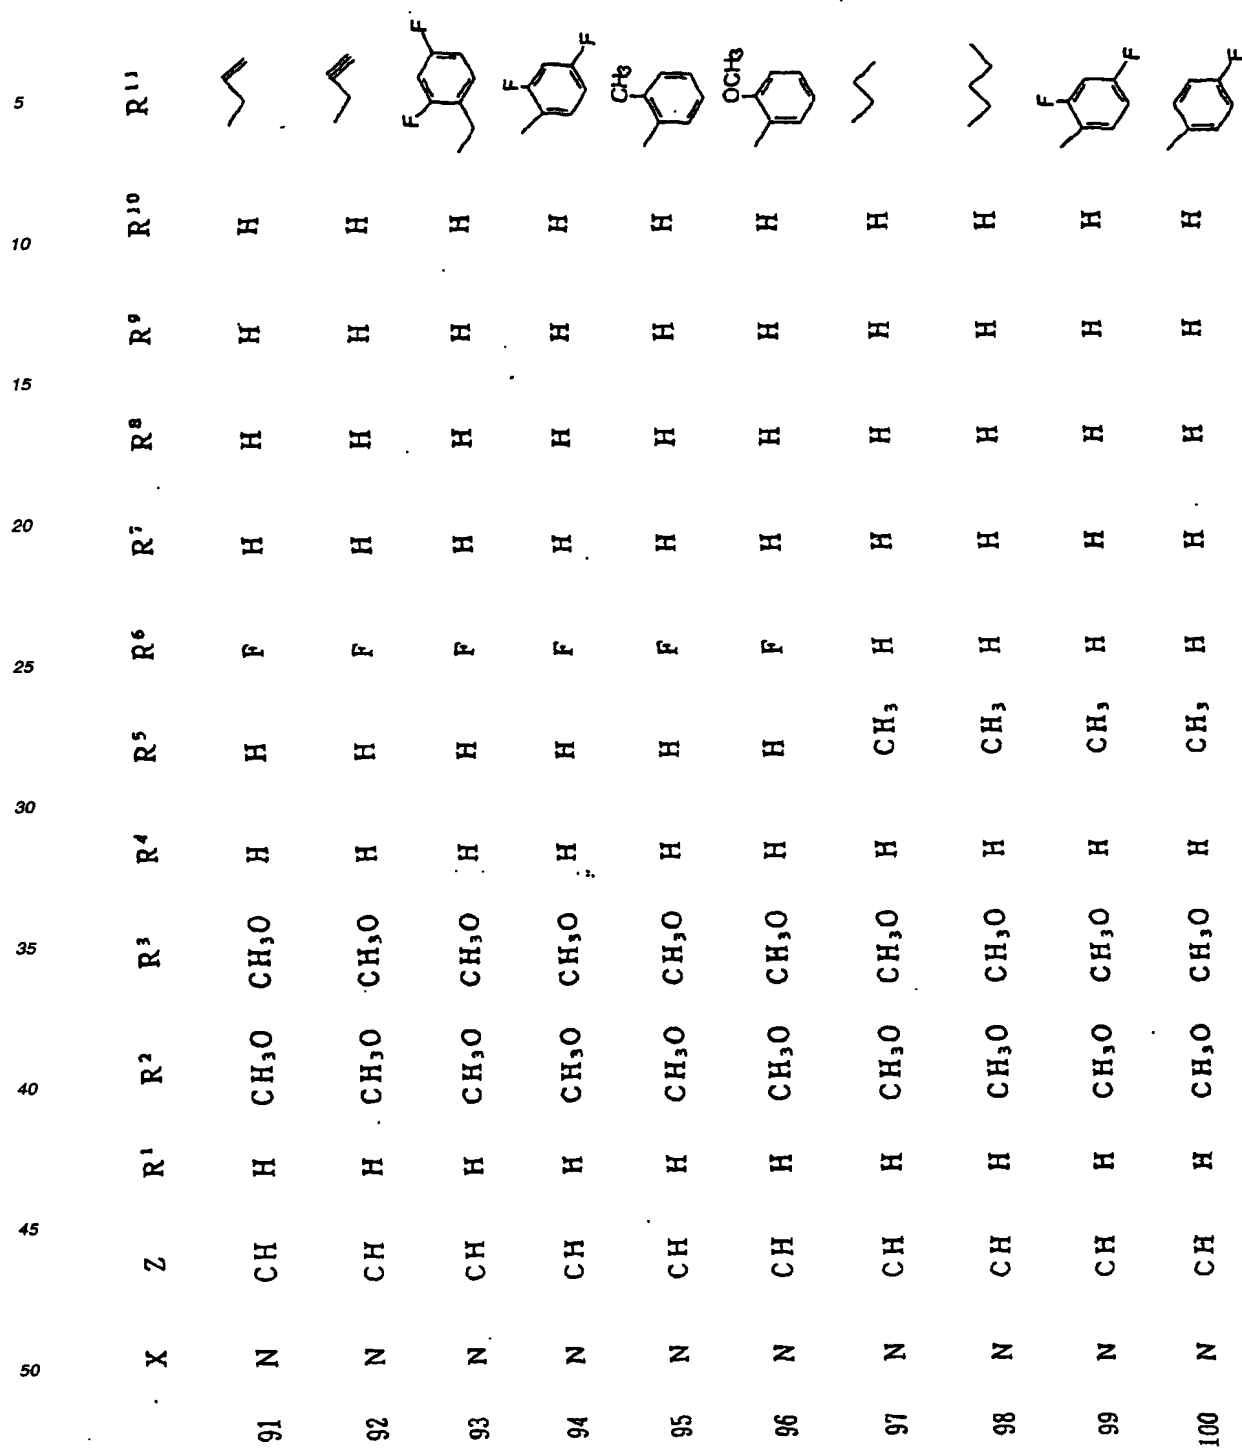 X Z R¹ R² R³ R⁴ R⁵ R⁶ R⁷ R⁸ R⁹ R¹⁰ R¹¹
91 N CH H CH₃O CH₃O H H F H H H H
92 N CH H CH₃O CH₃O H H F H H H H
93 N CH H CH₃O CH₃O H H F H H H H F F
94 N CH H CH₃O CH₃O H H F H H H H F F
95 N CH H CH₃O CH₃O H H F H H H H CH3
96 N CH H CH₃O CH₃O H H F H H H H OCH3
97 N CH H CH₃O CH₃O H CH₃ H H H H H
98 N CH H CH₃O CH₃O H CH₃ H H H H H
99 N CH H CH₃O CH₃O H CH₃ H H H H H F F
100 N CH H CH₃O CH₃O H CH₃ H H H H H F
5
10
15
20
25
30
35
40
45
50